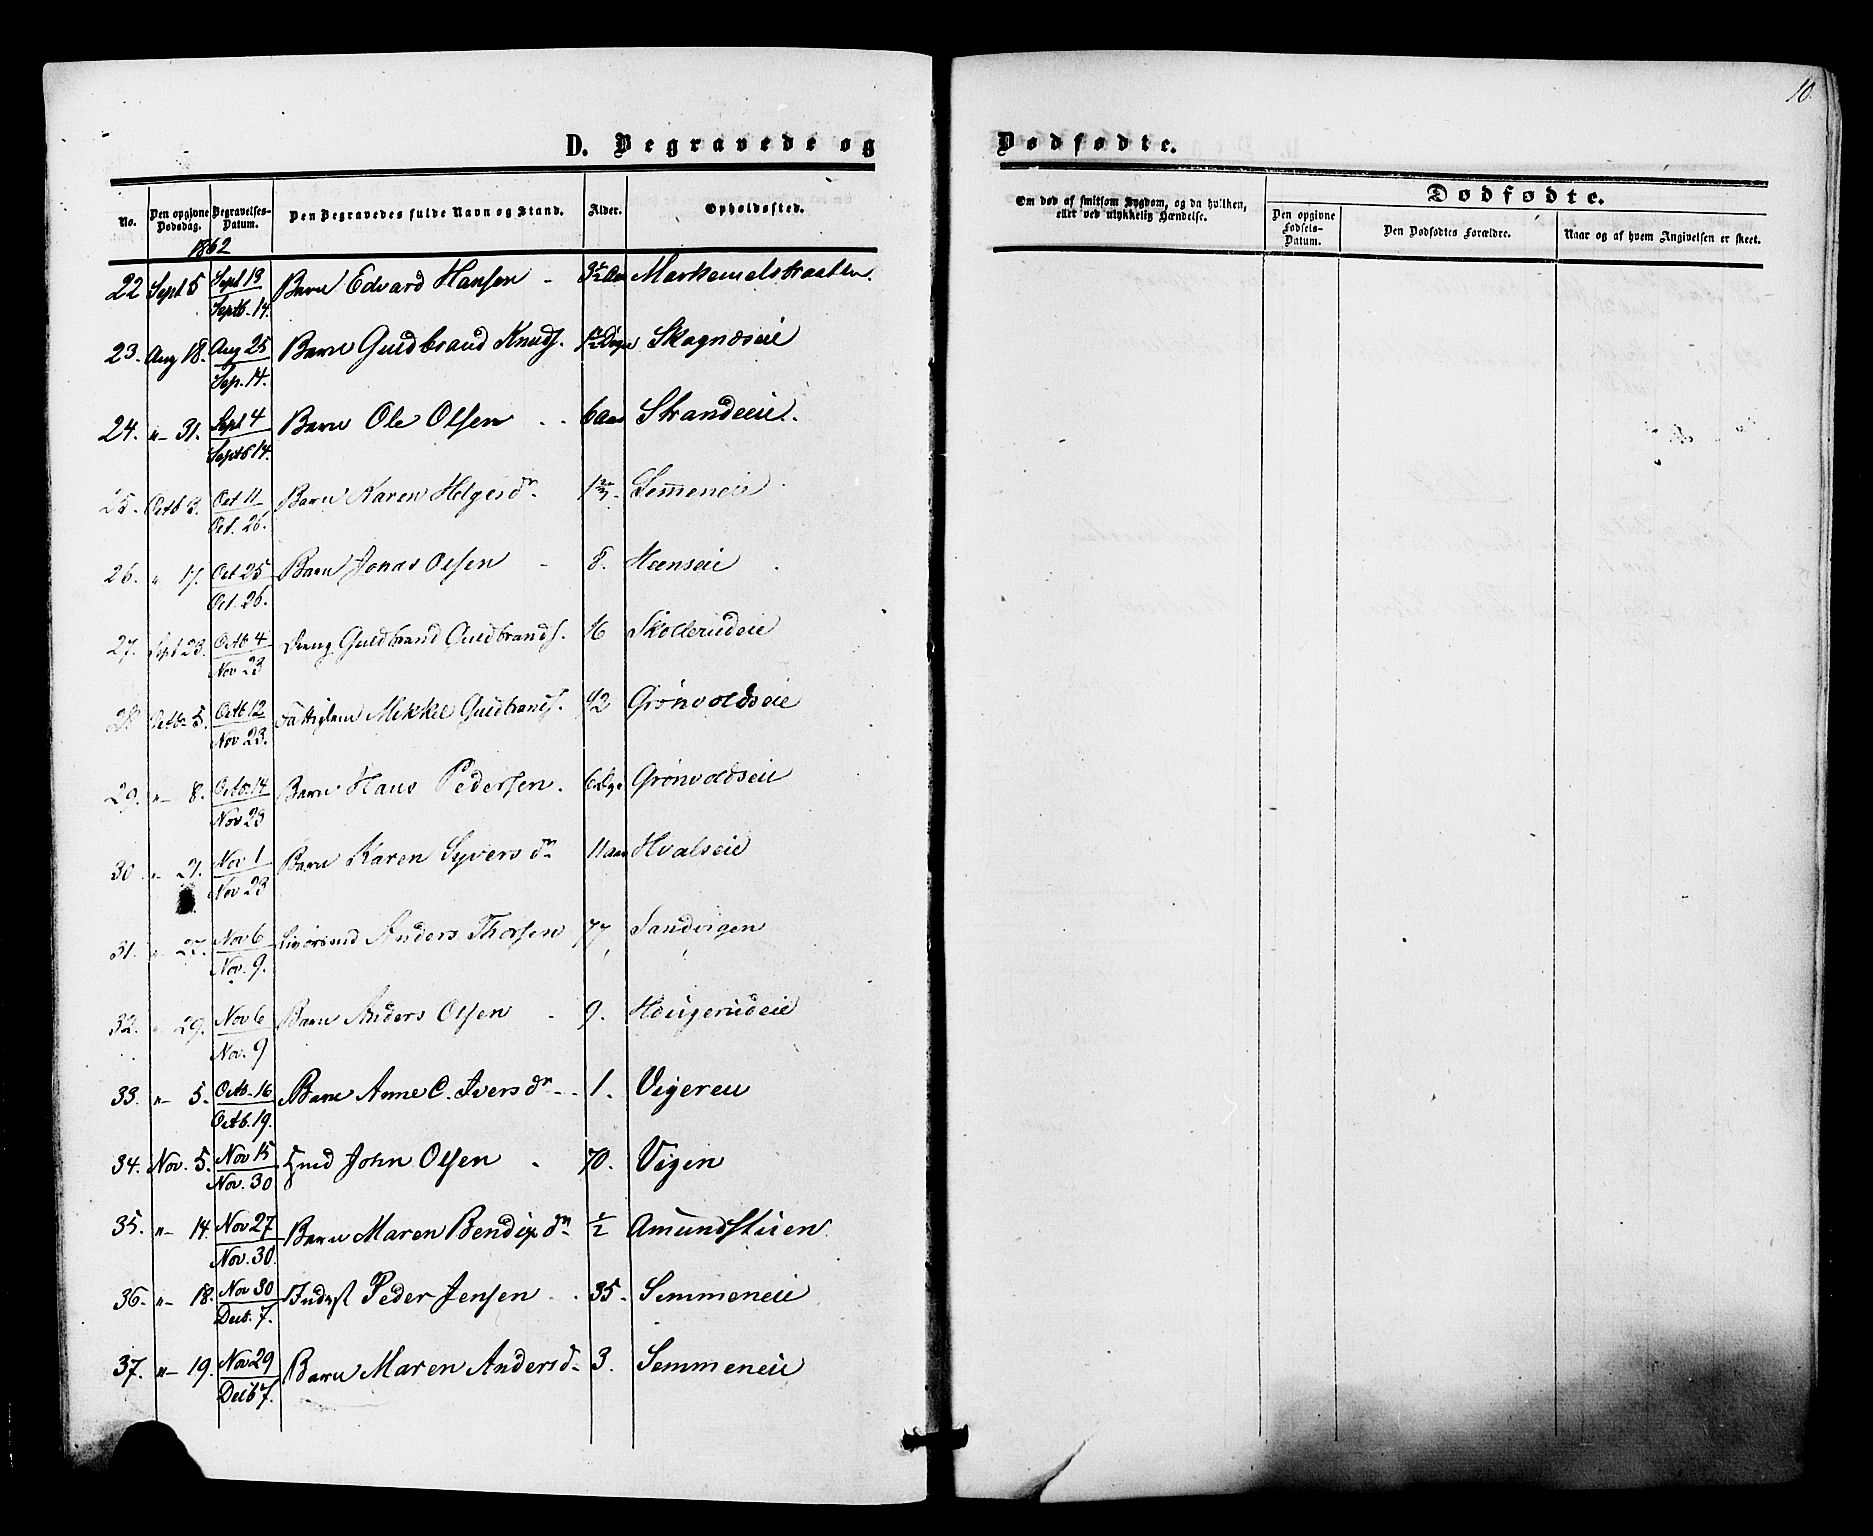 10.
D. Begravede og Dødfødte.
No. Den opgivne Dødsdag. Begravelses-Datum. Den Begravedes fulde Navn og Stand. Alder. Opholdssted.
Om død af smitsom Sygdom, og da hvilken, eller ved ulykkelig Hændelse.
Dødfødte.
Den opgivne Fødsels-Datum. Den Dødfødtes Forældre. Naar og af hvem Angivelsen er skeet.
1862
22 Sept 5 Sept 13 Barn Edvard Hansen - 3½ Aar
Septb. 14.
23. Aug 18. Aug 25 Barn Guldbrand Knuds. Skagnæseie
Sep. 14.
24. "- 31. Sept 4 Barn Ole Olsen 6 Aar Strandeeie.
Septb 14.
25. Octb 3. Oct 11 Barn Karen Helgesdr. Semmeneie
Oct. 26.
26. " 17. Oct 25 Barn Jonas Olsen - 8. Heenseie
Oct. 26.
27. Sept 23. Octb 4 Dreng Guldbrand Guldbrands. 16 Skollerudeie
Nov 23
28 Octb 5. Octb 12 Mikkel Guldbrands. 42 Grønvoldseie
Nov 23.
29. "- 8. Octb. 14 Barn Hans Pedersen. 6 Dge Grønvoldseie
Nov 23
30. "- 21. Nov 1 Barn Karen Syversdr 11 Aar Hvalseie
Nov 23
31. " 27. Nov 6 Anders Thorsen 77 Sandvigen
Nov. 9.
32. " 29. Nov 6 Barn Anders Olsen - 9. Hougerudeie
Nov. 9
33. "- 5. Octb. 16 Barn Anne C. Iversdr - 1. Vegeren
Octb. 19.
34. Nov. 5. Nov 15 John Olsen - 70. Vigen
Nov. 30
35. "- 14. Nov 27 Barn Maren Bendixdr ½ Amundstuen.
Nov. 30.
36. "- 18. Nov 30 Inderst Peder Jensen - 35. Semmeneie
Decb. 7.
37. "- 19. Nov 29 Barn Maren Andersd. 3. Semmeneie
Decb 7.